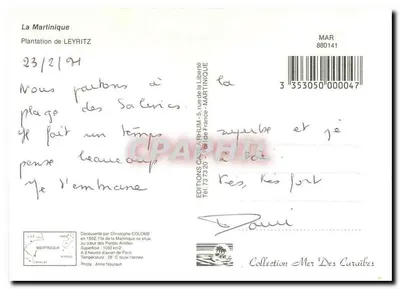 La Martinique
Plantation de LEYRITZ
MAR
880141
23/2/91
Nous partons à la
plage des Salines.
Il fait un temps superbe et je
pense beaucoup à toi.
Je t'embrasse très, très fort
3 353050 000047
EDITIONS - 5, rue de la Liberté
Tél. 73 73 20 - Fort de France - MARTINIQUE
Découverte par Christophe COLOMB
en 1502, l'île de la Martinique se situe
au cœur des Petites Antilles
Superficie : 1080 km2
A 8 heures d'avion de Paris
Température : 26° C toute l'année
MARTINIQUE
Photo : Anne
Collection Mer Des Caraïbes